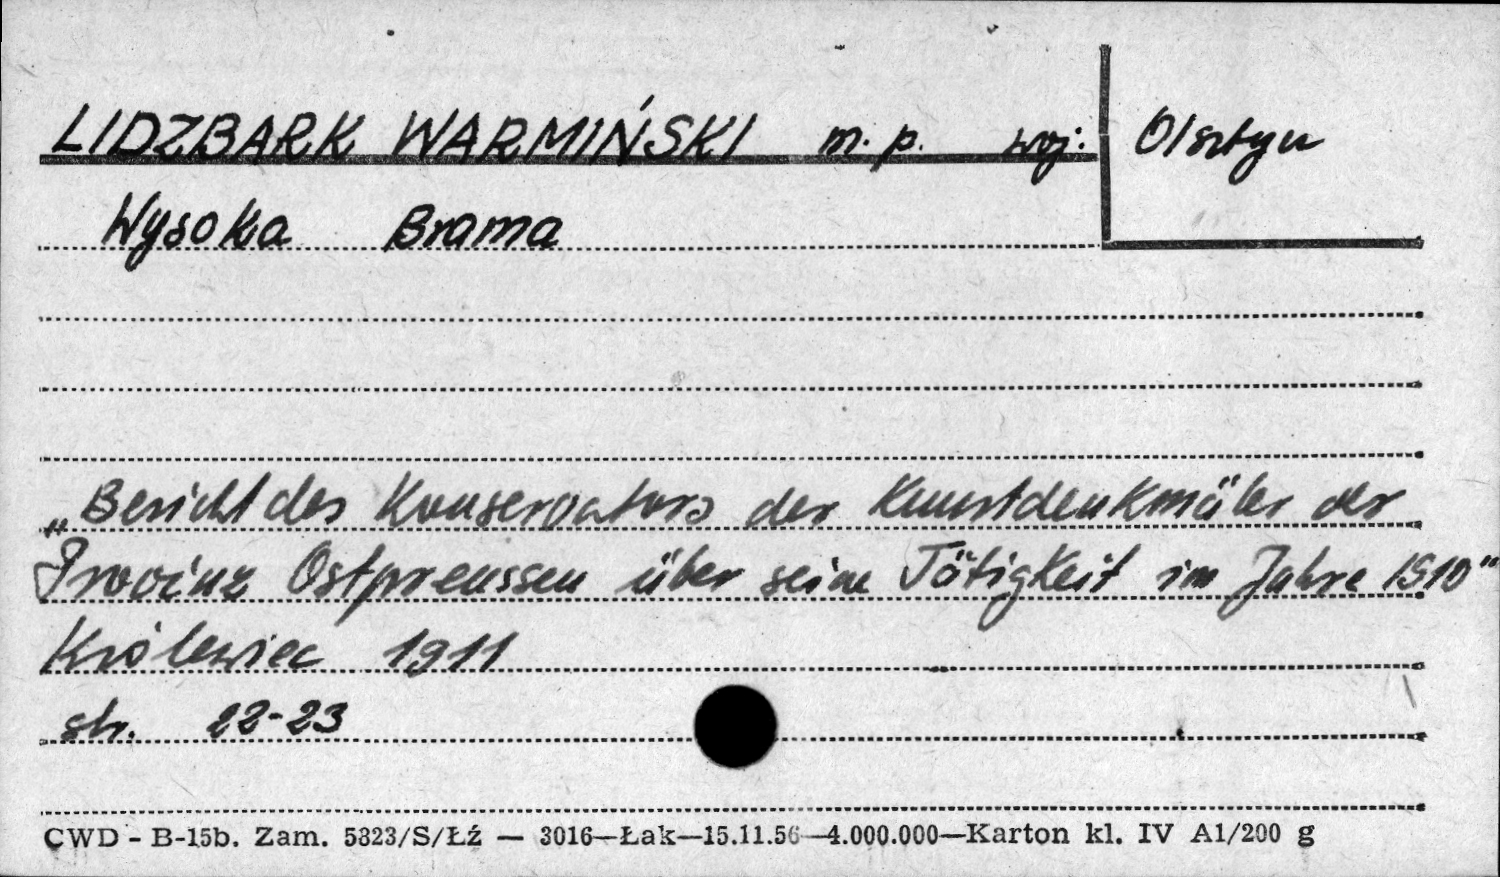 LIDZBARK WARMIŃSKI m. p. woj. Olsztyn
Wysoka Brama
„Bericht des Konservators der Kunstdenkmäler der
Provinz Ostpreussen über seine Tätigkeit im Jahre 1910“
Królewiec 1911
str. 22-23
CWD - B-15b. Zam. 5823/S/Łź — 3016—Łak—15.11.56—4.000.000—Karton kl. IV A1/200 g